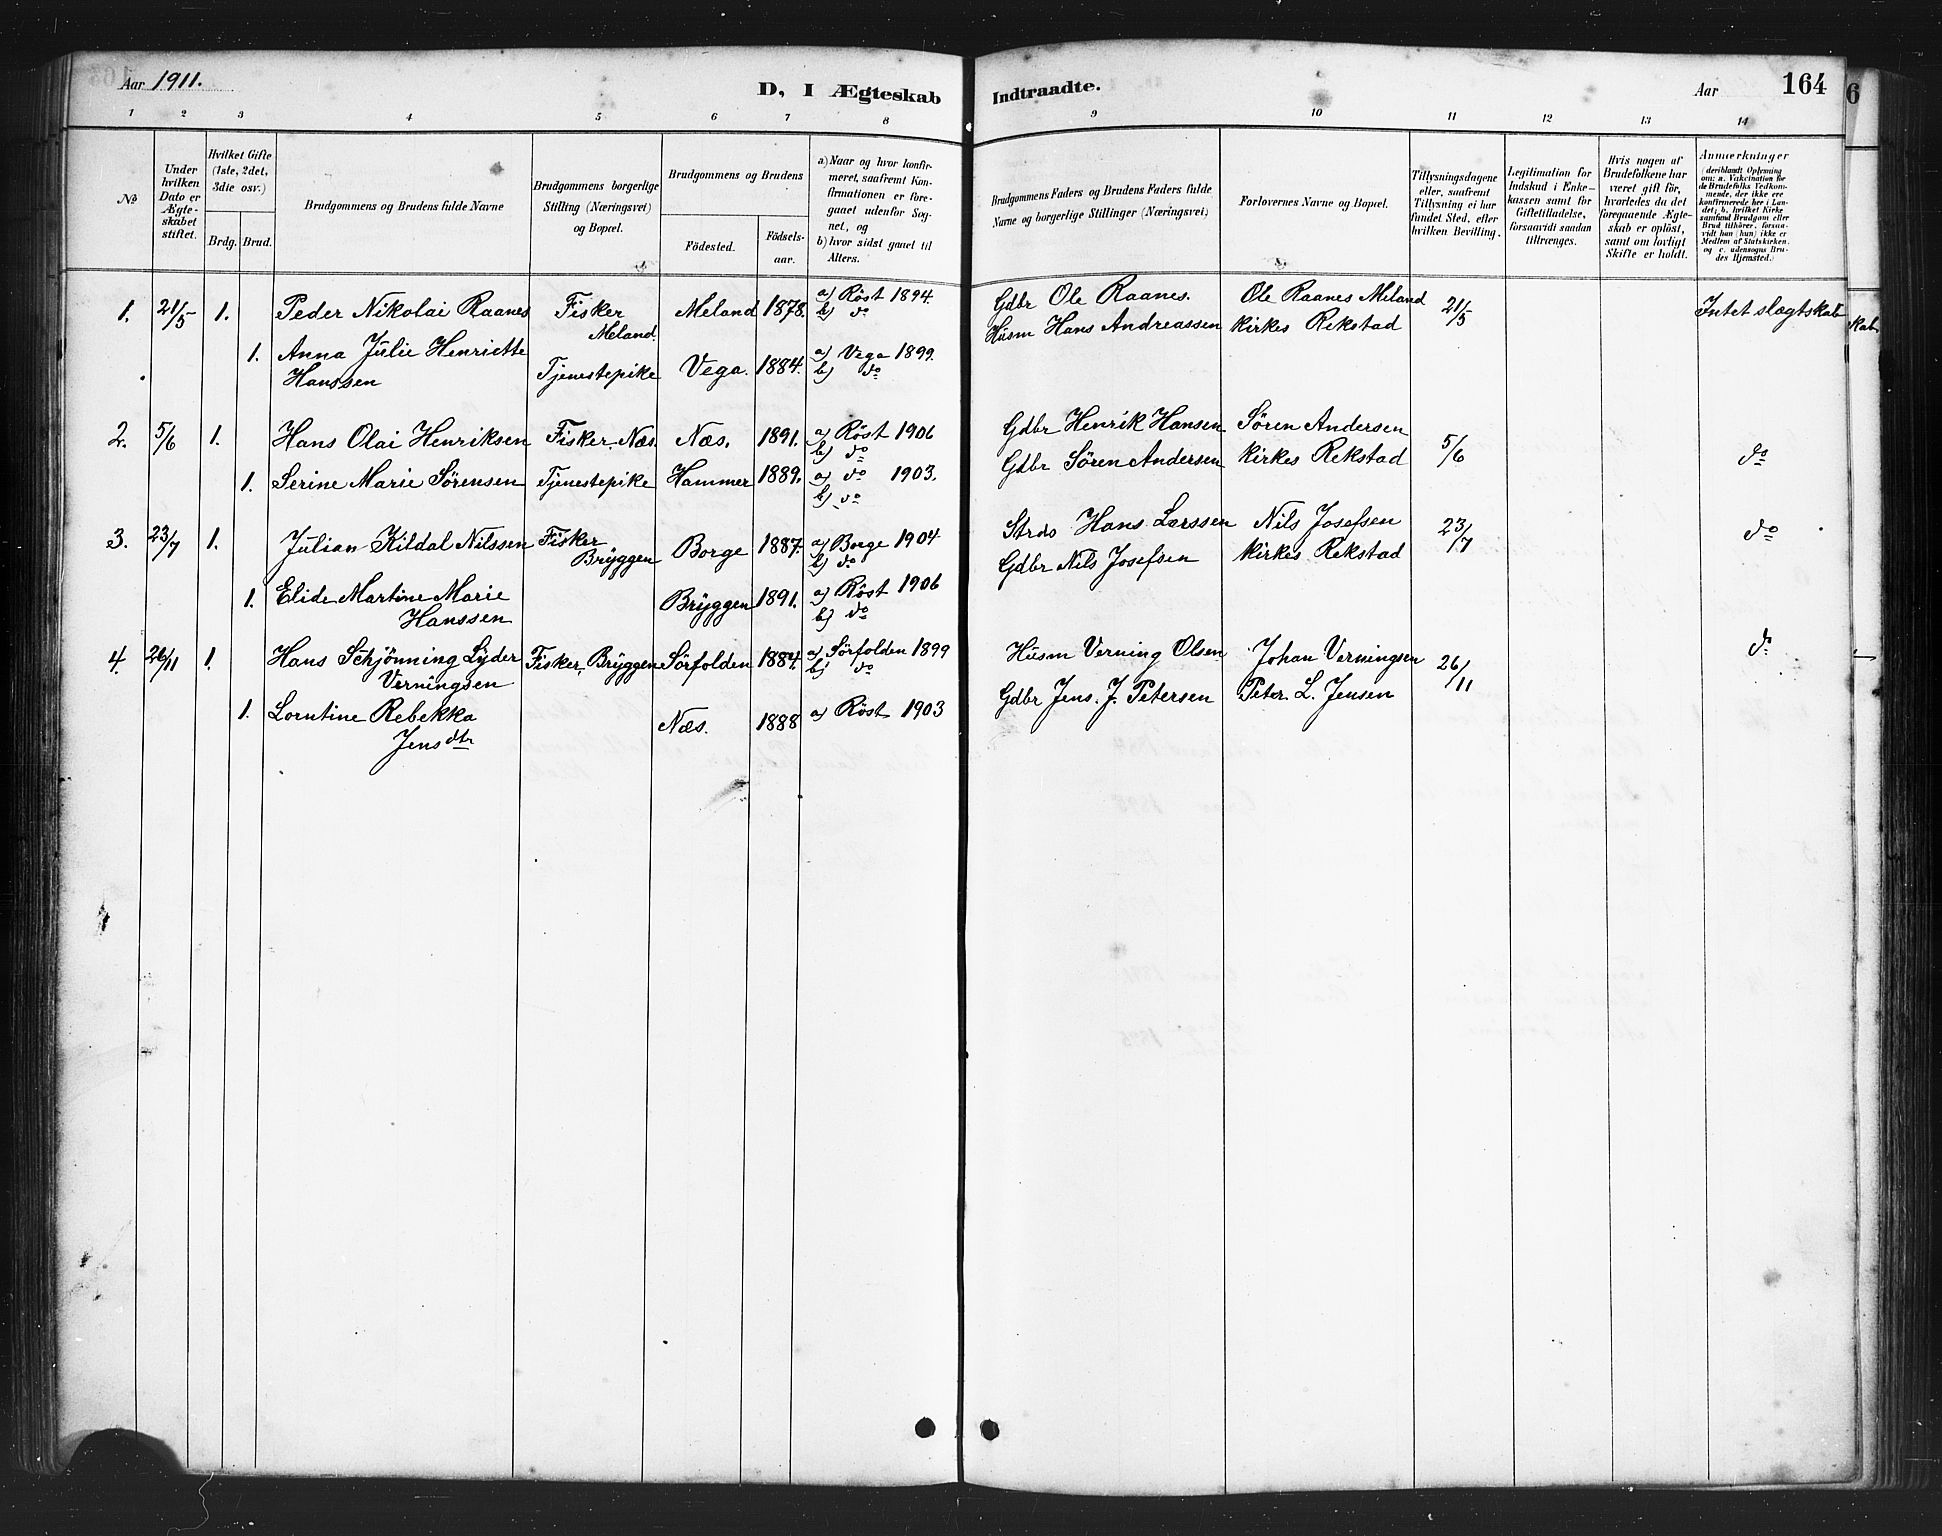 Aar 1911.
D, I Ægteskab
Indtraadte.
Aar
164
6
1 2 3 4 5 6 7 8 9 10 11 12 13 14
No
Under hvilken Dato er Ægteskabet stiftet.
Hvilket Gifte (1ste, 2det, 3die osv.)
Brdg. Brud.
Brudgommens og Brudens fulde Navne
Brudgommens borgerlige Stilling (Næringsvei) og Bopæl.
Brudgommens og Brudens
Födested.
Födsels-aar.
a) Naar og hvor konfirmeret, saafremt Konfirmationen er foregaaet udenfor Sognet, og
b) hvor sidst gaaet til Alters.
Brudgommens Faders og Brudens Faders fulde Navne og borgerlige Stillinger (Næringsvei)
Forlovernes Navne og Bopæl.
Tillysningsdagene eller, saafremt Tillysning ei har fundet Sted, efter hvilken Bevilling.
Legitimation for Indskud i Enkekassen samt for Giftetilladelse, forsaavidt saadan tiltrænges.
Hvis nogen af Brudefolkene har været gift för, hvorledes da det foregaaende Ægteskab er oplöst, samt om lovligt Skifte er holdt.
Anmærkninger (deriblandt Oplysning om: a. Vakcination for de Brudefolks Vedkommende, der ikke ere konfirmerede her i Landet; b. hvilket Kirkesamfund Brudgom eller Brud tilhörer, forsaavidt han (hun) ikke er Medlem af Statskirken, og c. udensogns Brudes Hjemsted.)
1. 21/5 1. Peder Nikolai Raanes Fisker Meland. Meland 1878. a) Röst 1894. b) do Gdbr Ole Raanes. Ole Raanes Meland 21/5 Intet slægtskab
1. Anna Julie Henriette Hanssen Tjenestepike Vega. 1884. a) Vega 1899. b) do Husm Hans Andreassen Kirkes Rekstad
2. 5/6 1. Hans Olai Henriksen Fisker. Næs. Næs. 1891. a) Röst 1906 b) do Gdbr Henrik Hansen Søren Andersen 5/6 do
1. Serine Marie Sørensen Tjenestepike Hammer 1889. a) do 1903. b) do Gdbr Søren Andersen Kirkes Rekstad
3. 23/7 1. Julian Kildal Nilssen Fisker Bryggen Borge 1887. a) Borge 1904 b) do Strds Hans Larssen Nils Josefsen 23/7 do
1. Elide Martine Marie Hanssen Bryggen 1891. a) Röst 1906 b) do Gdbr Nils Josefsen Kirkes Rekstad
4. 26/11 1. Hans Schjönning Lyder Verningsen Fisker, Bryggen Sörfolden 1884. a) Sörfolden 1899 b) do Husm Verning Olsen Johan Verningsen 26/11 do
1. Lorntine Rebekka Jensdtr Næs. 1888 a) Röst 1903 Gdbr Jens. J. Petersen Peter. L. Jensen
kab